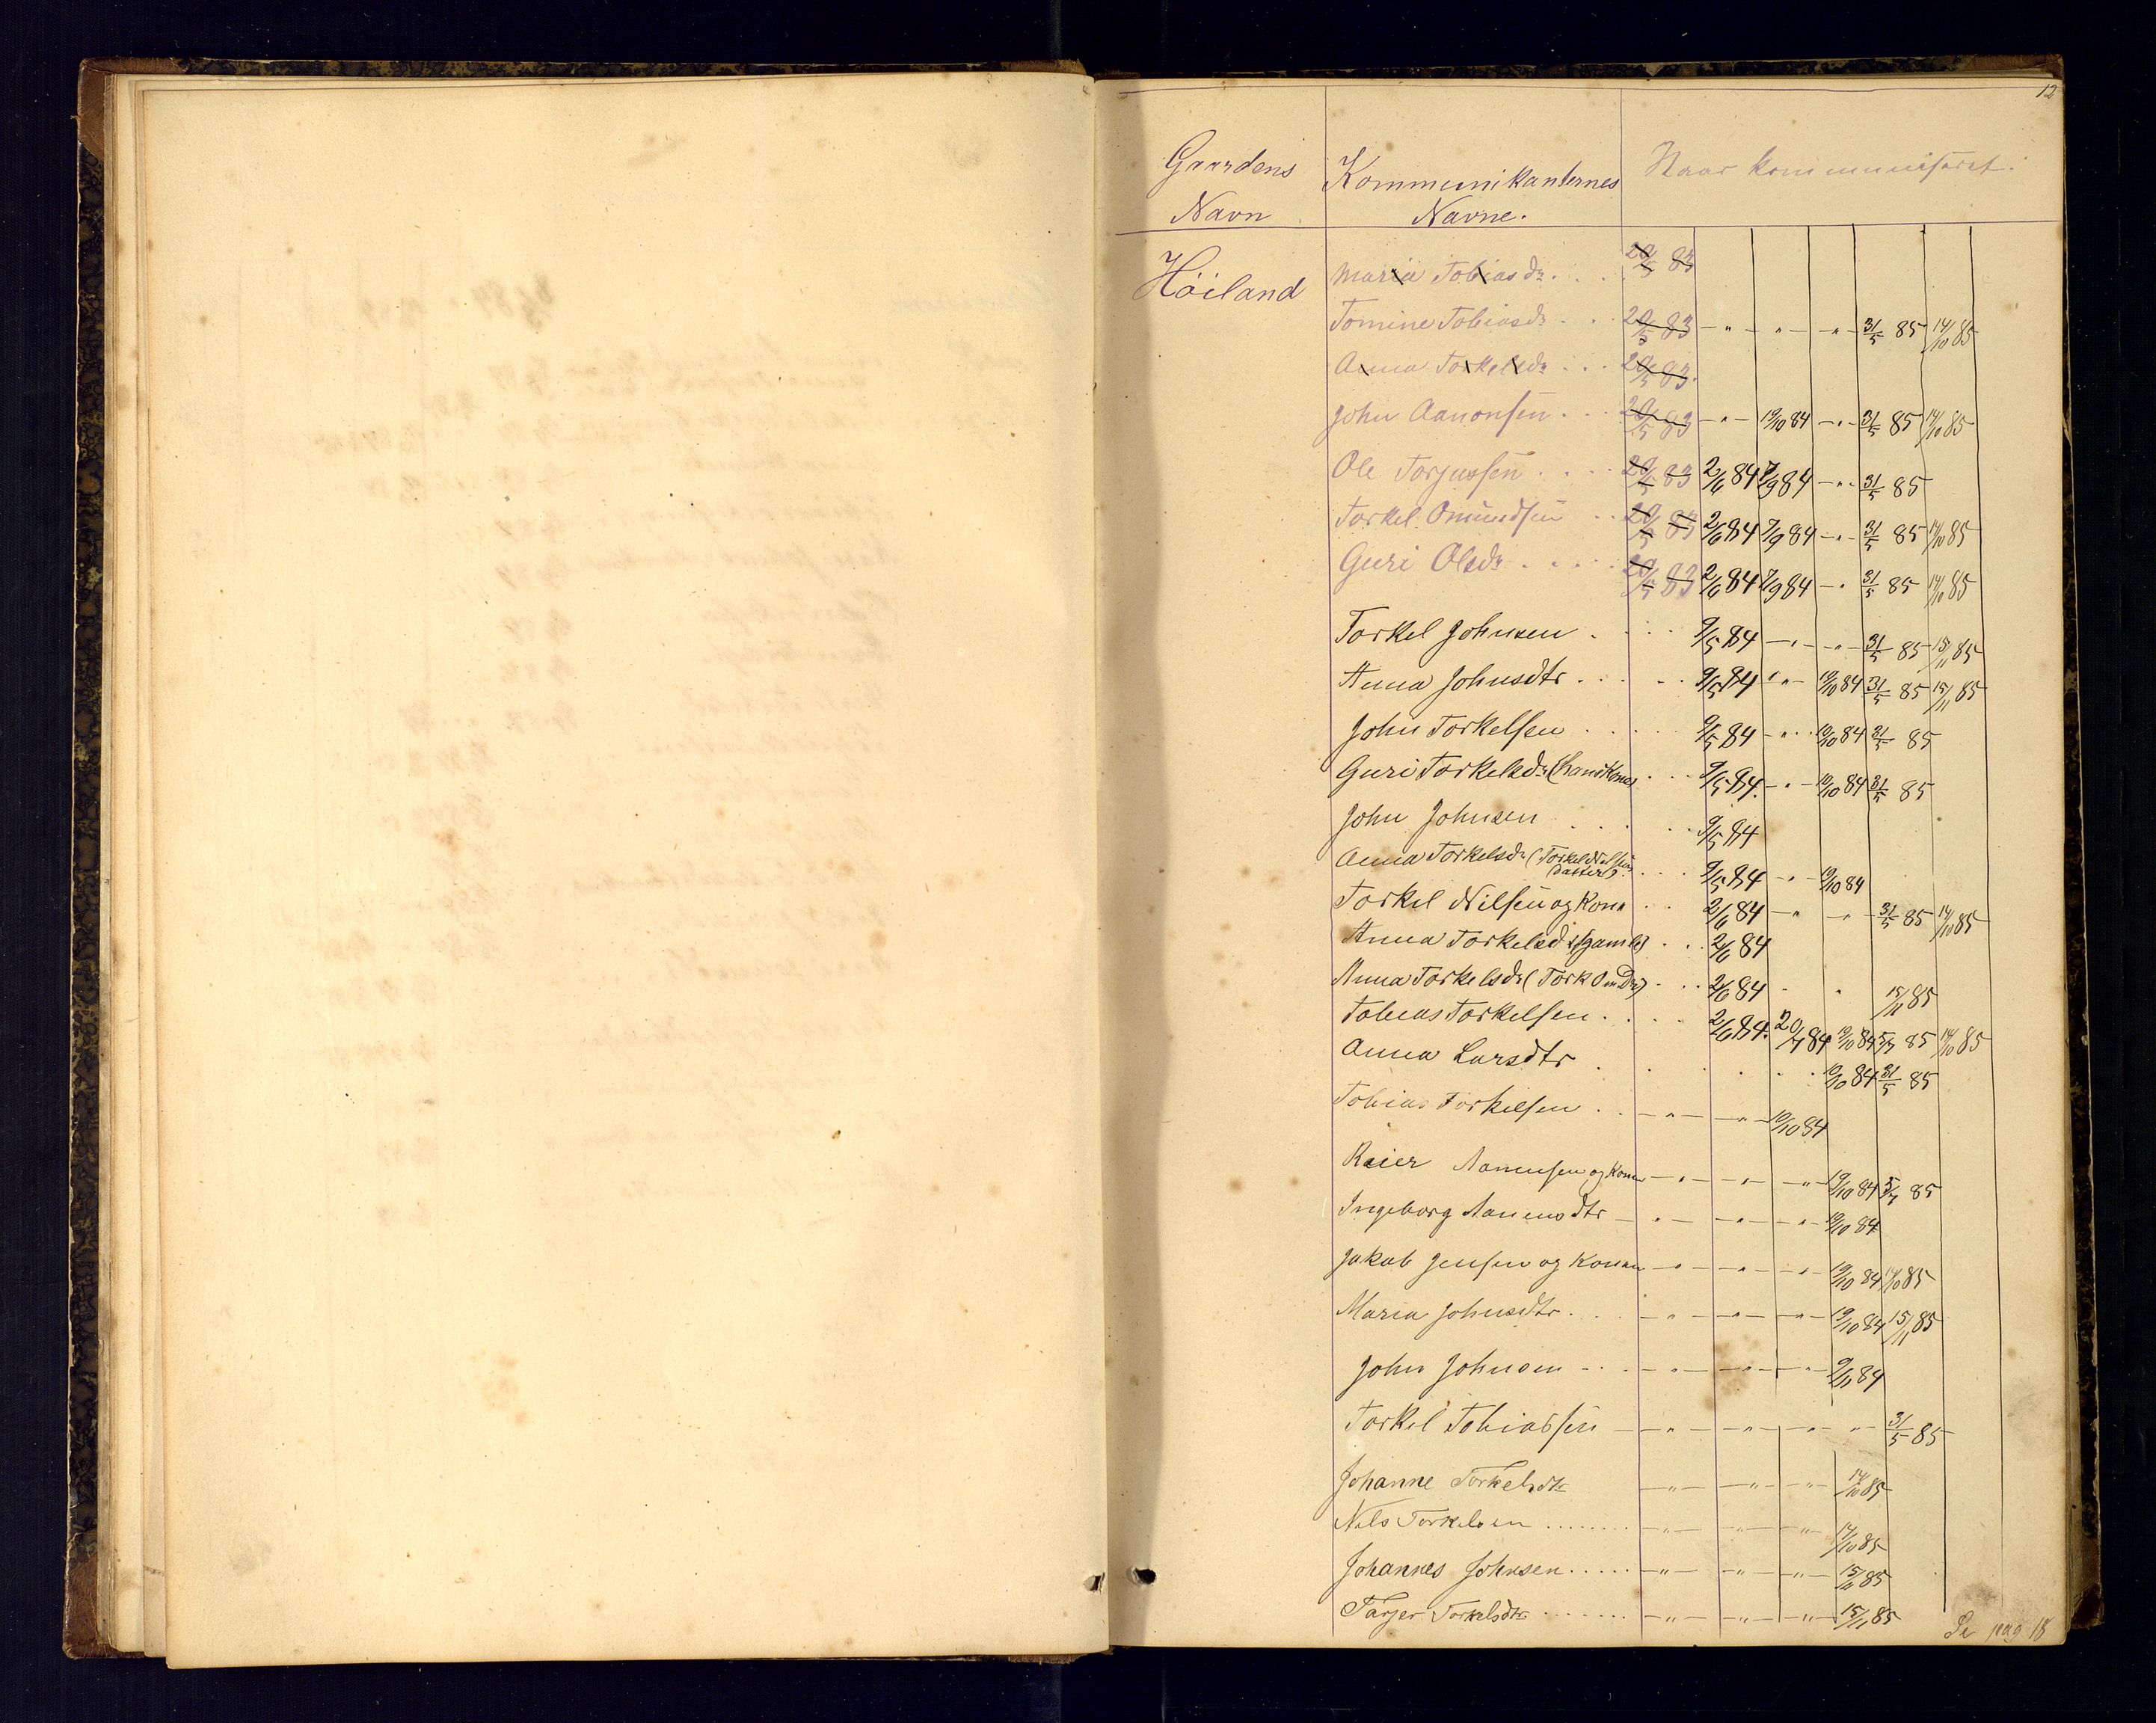 12
Gaardens Navn
Kommunikanternes Navne.
Naar kommuniseret.
Höiland
Maria Tobiasdr. . . 20/5 83
Tomine Tobiasdr . . 20/5 83 — " — " — — " — 31/5 85 14/10 85
Anna Torkelsdr . . . 20/5 83.
John Aanonsen . . . 20/5 83 — " — 19/10 84 — " — 31/5 85 14/10 85
Ole Torjussen . . . . 20/5 83 2/6 84 7/9 84 — " . 31/5 85
Torkel Omundsen . . 20/5 83 2/6 84 7/9 84 — " — 31/5 85 14/10 85
Guri Olsdr . . . . . 20/5 83 2/6 84 7/9 84 — " 31/5 85 14/10 85
Torkel Johnsen . . . . 9/5 84 — " — — " — 31/5 85 15/11 85
Anna Johnsdtr . . . . . 9/5 84 " " — 19/10 84 31/5 85 15/11 85
John Torkelsen . . . . 9/5 84 — " . . 19/10 84 31/5 85
Guri Torkelsdr (hans Kone) . . . 9/5 84. — " — 19/10 84 31/5 85
John Johnsen . . . . . 9/5 84
Anna Torkelsdr (Torkel Nilsens datter) . . . 9/5 84 — " — 19/10 84
Torkel Nilsen og Kona . . 2/6 84 — " — " — 31/5 85 14/10 85
Anna Torkelsdr (gamle) . . . 2/6 84
Anna Torkelsdr (Tork Om Dr) . . . 2/6 84 . " 15/11 85
Tobias Torkelsen . . . . 2/6 84. 20/7 84 19/10 84 5/7 85 14/10 85
Anna Larsdtr . . . . . . 19/10 84 31/5 85
Tobias Torkelsen . . — " — — " — 19/10 84
Reier Aanensen og Kone — " — — " — — " — 19/10 84 5/7 85
Ingeborg Aanensdtr — " — — " — — " — 19/10 84
Jakob Jensen og Konen — " — — " — — " — 19/10 84 14/10 85
Maria Johnsdtr. . . . — " — — " — — " — 19/10 84 15/11 85
John Johnsen - . . — " — — " — — " — 9/11 84
Torkel Tobiassen — — " — — " — — " — " 31/5 85
Johanne Torkelsdtr — " — — " — — " — 14/10 85
Nils Torkelsen ........ — " — — " — — " — 14/10 85
Johannes Johnsen ...... — " — — " — — " — 15/11 85
Tarjer Torkelsdtr ........ — " — — " — — " — 15/11 85
Se pag 18